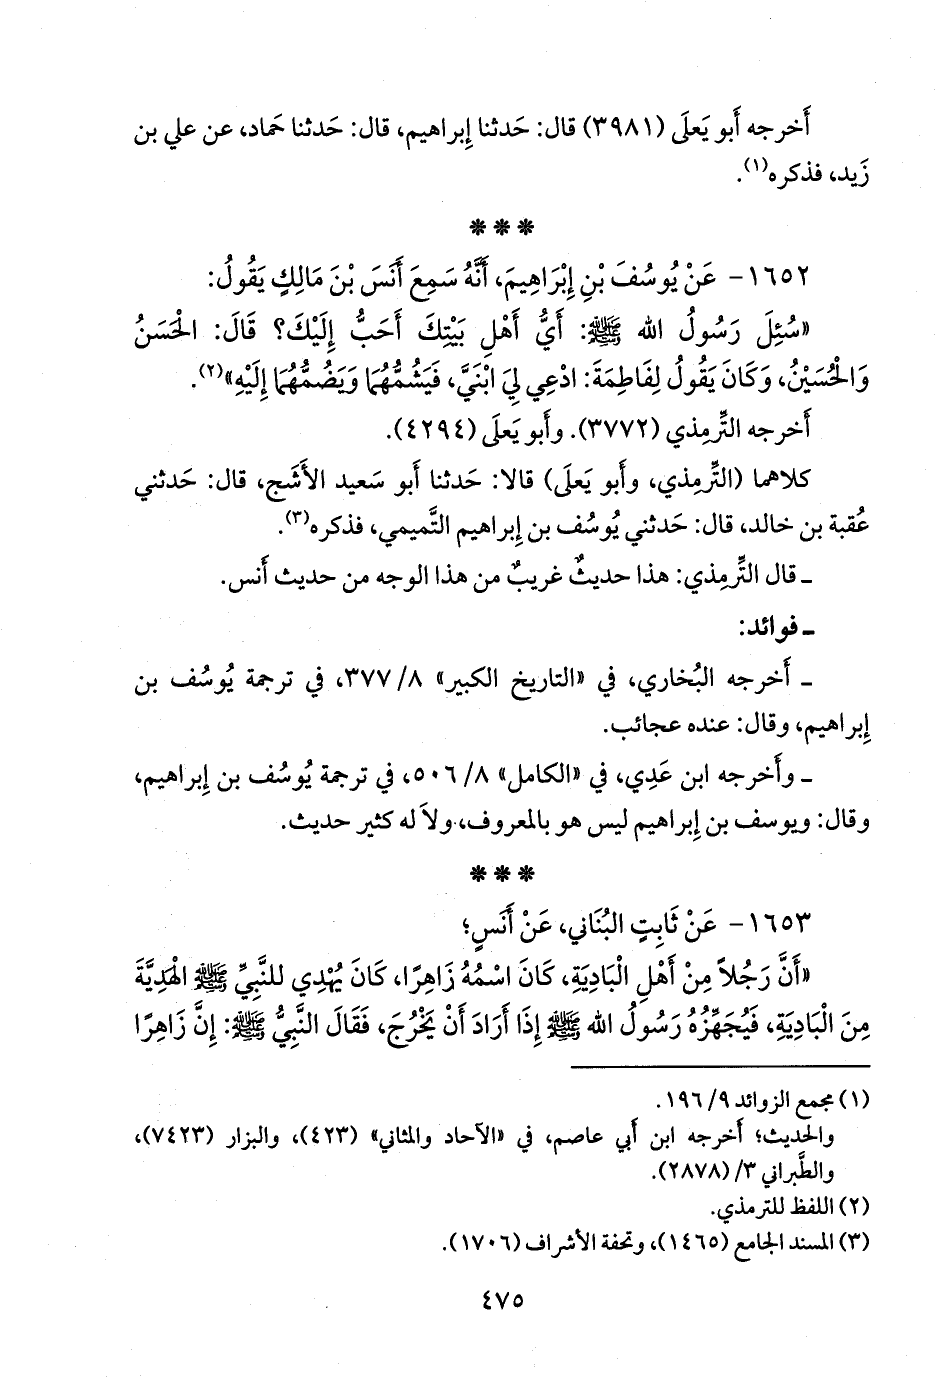 أَخرجه أَبو يَعلَى (٣٩٨١) قال: حَدثنا إِبراهيم، قال: حَدثنا حَماد، عن علي بن
زَيد، فذكره(١).
* * *
١٦٥٢- عَنْ يُوسُفَ بْنِ إِبْرَاهِيمَ، أَنَّهُ سَمِعَ أَنَسَ بْنَ مَالِكٍ يَقُولُ:
«سُئِلَ رَسُولُ الله ﷺ: أَيُّ أَهْلِ بَيْتِكَ أَحَبُّ إِلَيْكَ؟ قَالَ: الْحَسَنُ
وَالْحُسَيْنُ، وَكَانَ يَقُولُ لِفَاطِمَةَ: ادْعِي لِيَ ابْنَيَّ، فَيَشُمُّهُمَا وَيَضُمُّهُمَا إِلَيْهِ»(٢).
أَخرجه التِّرمِذي (٣٧٧٢). وأَبو يَعلَى (٤٢٩٤).
كلاهما (التِّرمِذي، وأَبو يَعلَى) قالا: حَدثنا أَبو سَعيد الأَشَج، قال: حَدثني
عُقبة بن خالد، قال: حَدثني يُوسُف بن إِبراهيم التَّميمي، فذكره(٣).
ـ قال التِّرمِذي: هذا حديثٌ غريبٌ من هذا الوجه من حديث أَنس.
ـ فوائد:
ـ أَخرجه البُخاري، في «التاريخ الكبير» ٨/ ٣٧٧، في ترجمة يُوسُف بن
إِبراهيم، وقال: عنده عجائب.
ـ وأَخرجه ابن عَدِي، في «الكامل» ٨/ ٥٠٦، في ترجمة يُوسُف بن إِبراهيم،
وقال: ويوسف بن إِبراهيم ليس هو بالمعروف، ولاَ له كثير حديث.
* * *
١٦٥٣- عَنْ ثَابِتٍ البُنَاني، عَنْ أَنَسٍ؛
«أَنَّ رَجُلاً مِنْ أَهْلِ الْبَادِيَةِ، كَانَ اسْمُهُ زَاهِرًا، كَانَ يُهْدِي للنَّبِيِّ ﷺ الْهَدِيَّةَ
مِنَ الْبَادِيَةِ، فَيُجَهِّزُهُ رَسُولُ الله ﷺ إِذَا أَرَادَ أَنْ يَخْرُجَ، فَقَالَ النَّبِيُّ ﷺ: إِنَّ زَاهِرًا
(١) مجمع الزوائد ٩/ ١٩٦.
والحديث؛ أَخرجه ابن أَبي عاصم، في «الآحاد والمثاني» (٤٢٣)، والبزار (٧٤٢٣)،
والطَّبراني ٣/ (٢٨٧٨).
(٢) اللفظ للترمذي.
(٣) المسند الجامع (١٤٦٥)، وتحفة الأشراف (١٧٠٦).
٤٧٥